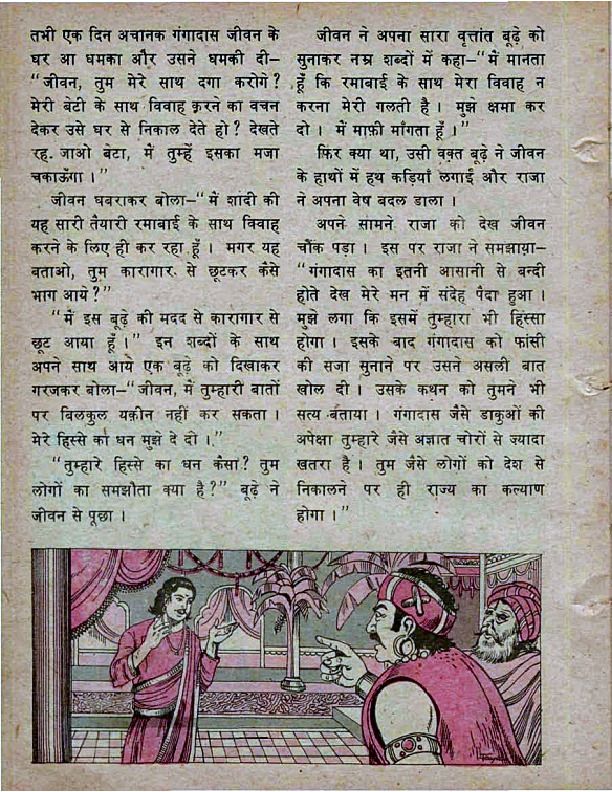 तभी एक दिन अचानक गंगादास जीवन के
घर आ धमका और उसने धमकी दी—
“जीवन, तुम मेरे साथ दगा करोगे?
मेरी बेटी के साथ विवाह करने का वचन
देकर उसे घर से निकाल देते हो? देखते
रह जाओ बेटा, मैं तुम्हें इसका मजा
चकाऊँगा।”
जीवन घबराकर बोला—“मैं शादी की
यह सारी तैयारी रमाबाई के साथ विवाह
करने के लिए ही कर रहा हूँ। मगर यह
बताओ, तुम कारागार से छूटकर कैसे
भाग आये?”
“मैं इस बूढ़े की मदद से कारागार से
छूट आया हूँ।” इन शब्दों के साथ
अपने साथ आये एक बूढ़े को दिखाकर
गरजकर बोला—“जीवन, मैं तुम्हारी बातों
पर बिलकुल यक़ीन नहीं कर सकता।
मेरे हिस्से का धन मुझे दे दो।”
“तुम्हारे हिस्से का धन कैसा? तुम
लोगों का समझौता क्या है?” बूढ़े ने
जीवन से पूछा।
जीवन ने अपना सारा वृत्तांत बूढ़े को
सुनाकर नम्र शब्दों में कहा—“मैं मानता
हूँ कि रमाबाई के साथ मेरा विवाह न
करना मेरी गलती है। मुझे क्षमा कर
दो। मैं माफ़ी माँगता हूँ।”
फिर क्या था, उसी वक़्त बूढ़े ने जीवन
के हाथों में हथ कड़ियाँ लगाईं और राजा
ने अपना वेष बदल डाला।
अपने सामने राजा को देख जीवन
चौंक पड़ा। इस पर राजा ने समझाया—
“गंगादास का इतनी आसानी से बन्दी
होते देख मेरे मन में संदेह पैदा हुआ।
मुझे लगा कि इसमें तुम्हारा भी हिस्सा
होगा। इसके बाद गंगादास को फांसी
की सजा सुनाने पर उसने असली बात
खोल दी। उसके कथन को तुमने भी
सत्य बताया। गंगादास जैसे डाकुओं की
अपेक्षा तुम्हारे जैसे अज्ञात चोरों से ज्यादा
खतरा है। तुम जैसे लोगों को देश से
निकालने पर ही राज्य का कल्याण
होगा।”